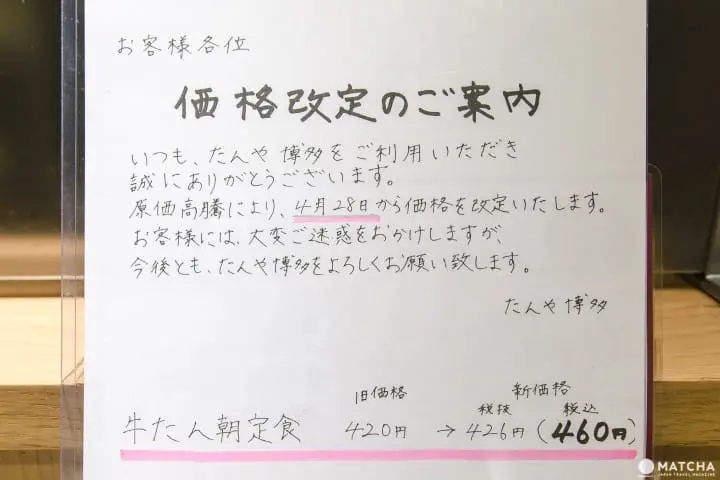 お客様各位
価格改定のご案内
いつも、たんや博多をご利用いただき
誠にありがとうございます。
原価高騰により、4月28日から価格を改定いたします。
お客様には、大変ご迷惑をおかけしますが、
今後とも、たんや博多をよろしくお願い致します。
たんや博多
旧価格 新価格
税抜 税込
牛たん朝定食 420円 → 426円 (460円)
MATCHA
JAPAN TRAVEL MAGAZINE